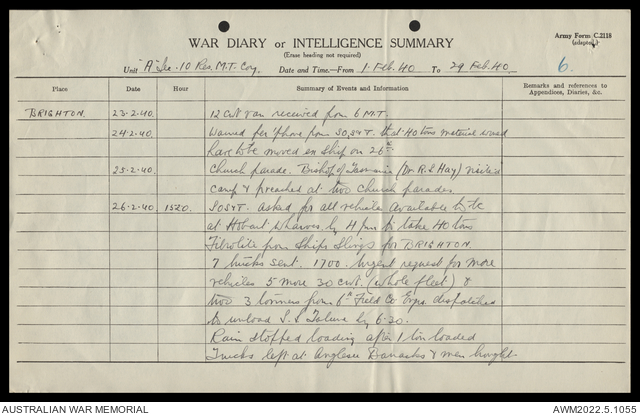 Army Form C.2118
(adapted)
WAR DIARY or INTELLIGENCE SUMMARY
(Erase heading not required)
6.
Unit A Sec. 10 Res. M.T. Coy. Date and Time.—From 1. Feb. 40 To 29 Feb. 40.
Place Date Hour Summary of Events and Information Remarks and references to Appendices, Diaries, &c.
BRIGHTON. 23-2-40. 12 cwt van received from 6 M.T.
24-2-40. Warned per 'phone from SOS&T. that 40 tons material would
have to be moved ex ship on 26th.
25-2-40. Church parade. Bishop of Tasmania (Dr R.S Hay) visited
camp & preached at two church parades
26-2-40. 1520. SOS&T. asked for all vehicles available to be
at Hobart wharves by 4 pm to take 40 tons
Fibrolite from Ships Slings for BRIGHTON.
7 trucks sent. 1700. Urgent request for more
vehicles 5 more 30 cwt. (whole fleet) &
two 3 tonners from 6th Field Co Engs. dispatched
to unload S.S. by 6-30.
Rain stopped loading after 1 ton loaded
Trucks left at Anglesea Barracks & men brought
AUSTRALIAN WAR MEMORIAL
AWM2022.5.1055